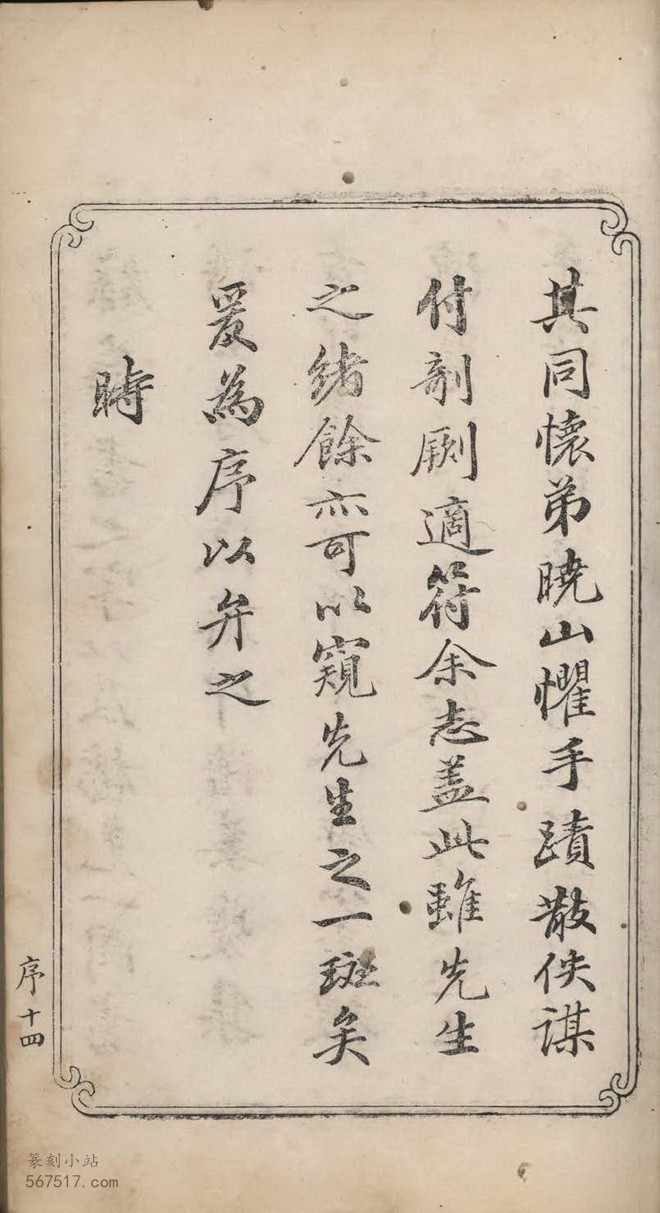 其同懷弟曉山懼手蹟散佚謀
付剞劂適符余志蓋此雖先生
之緒餘亦可以窺先生之一斑矣
爰為序以弁之
時
序十四
篆刻小站
567517.com